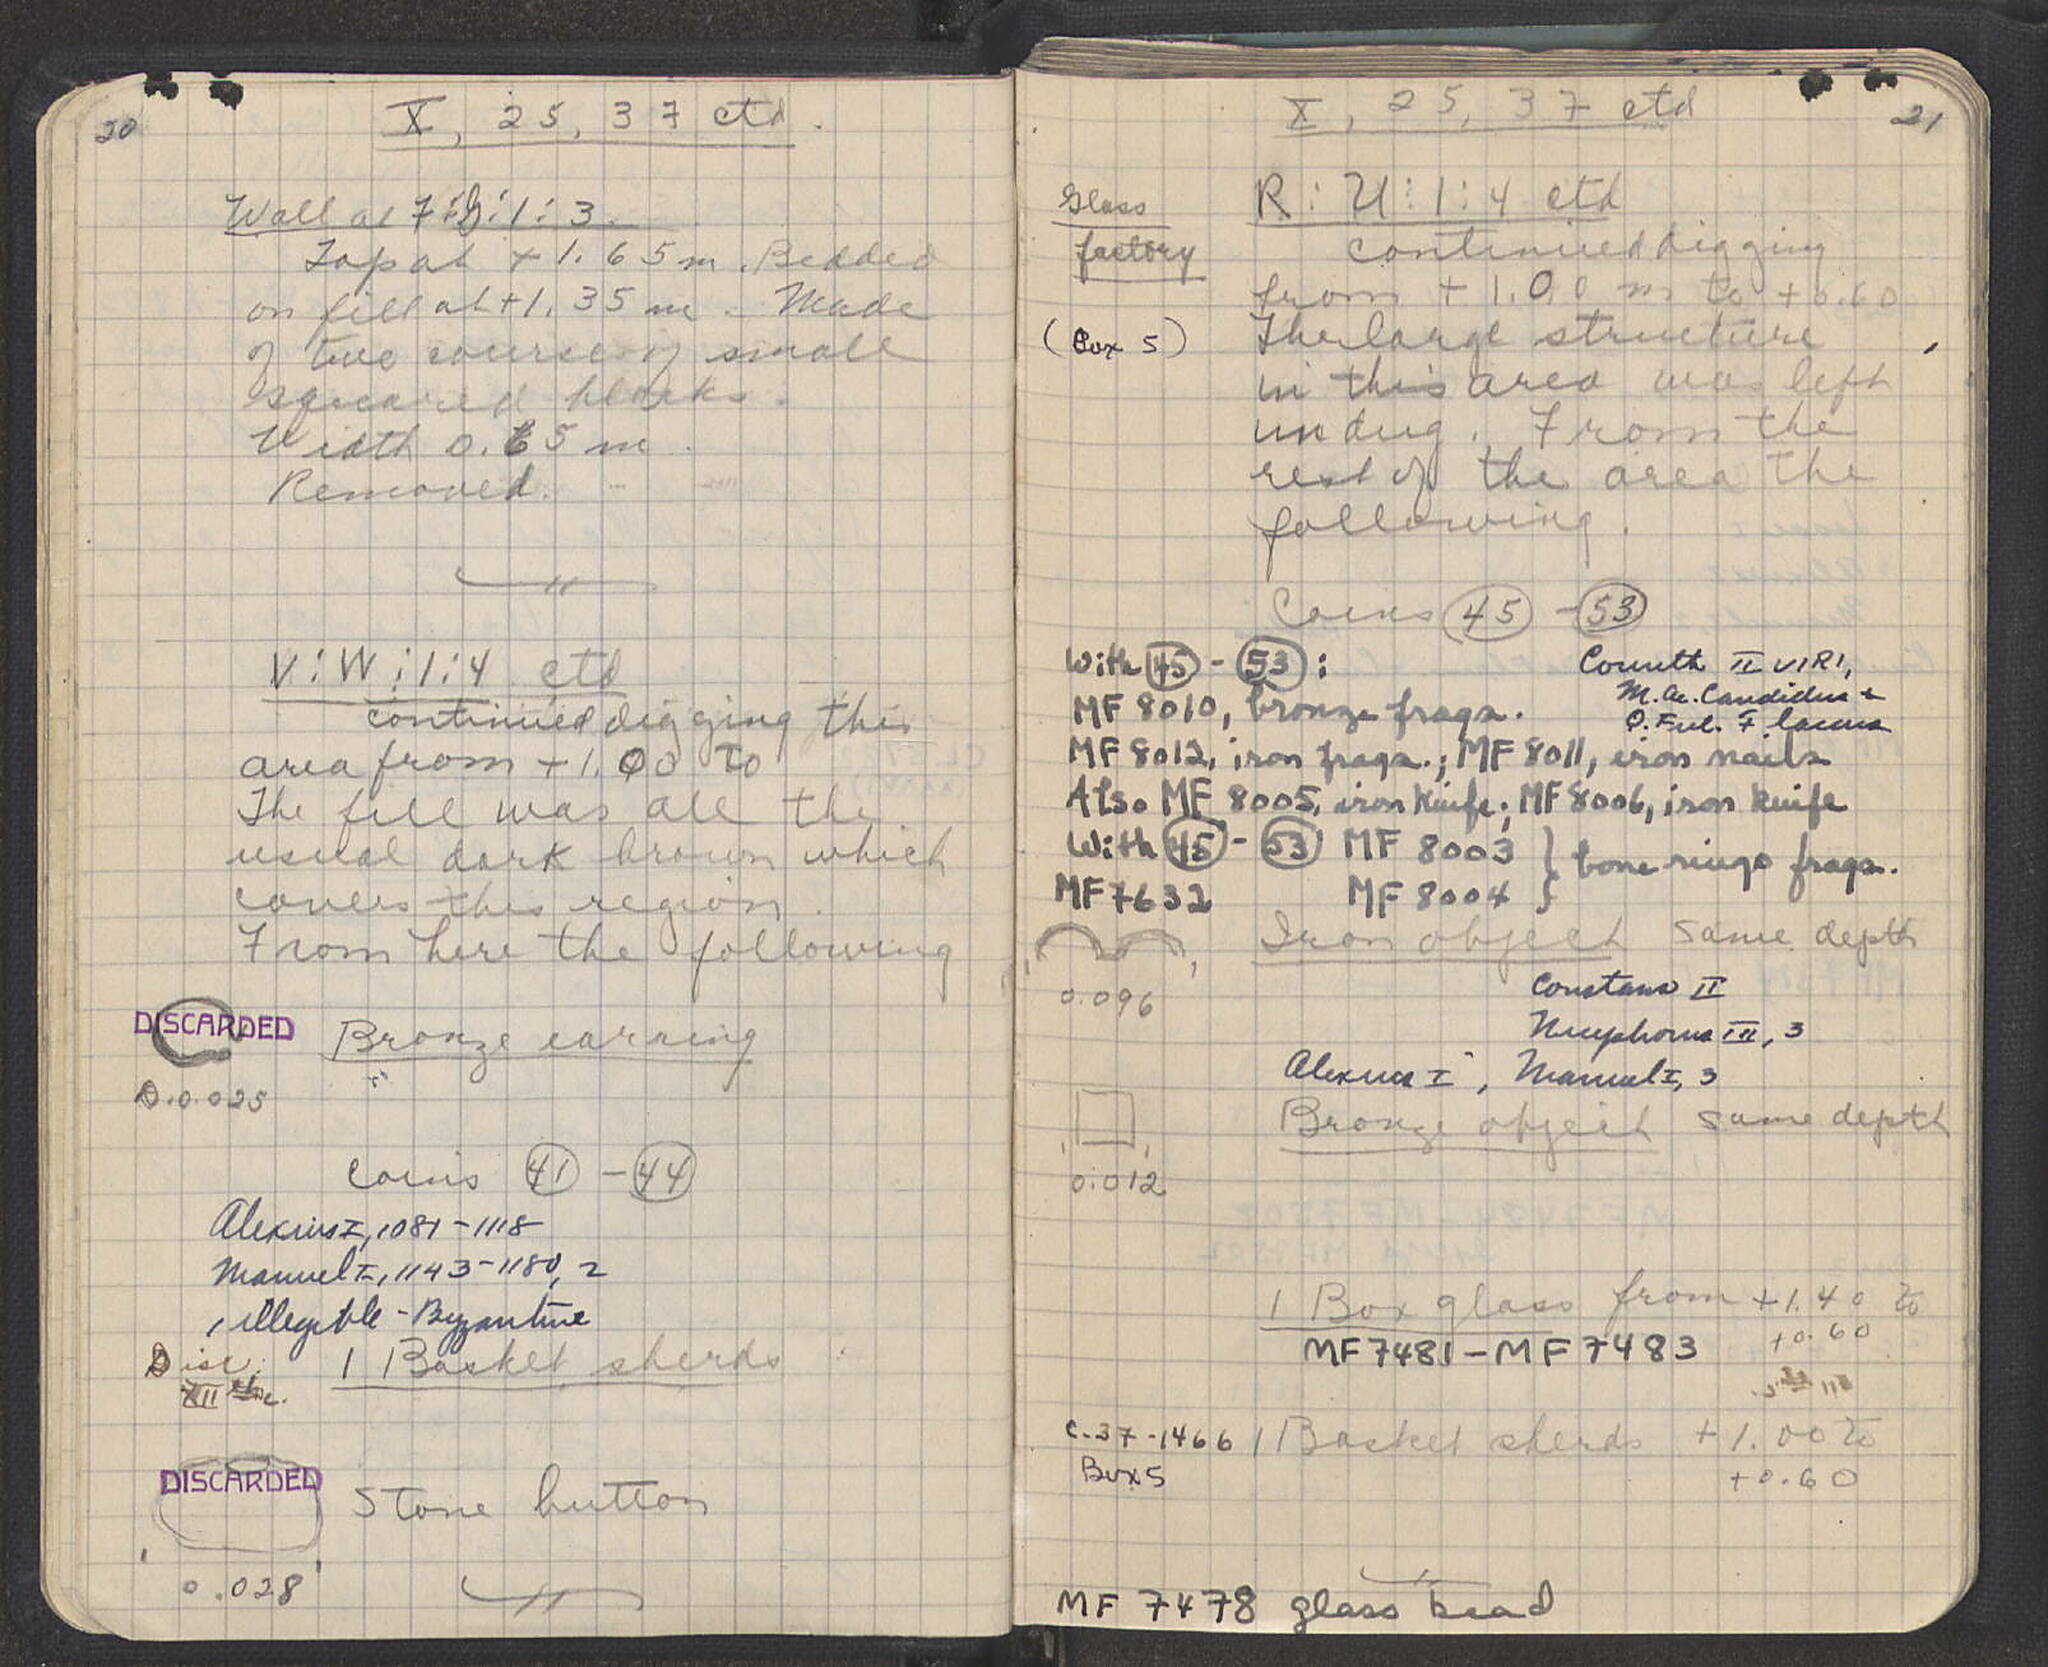 20
X, 25, 37 ctd.
Wall at 7:8:1:3.
Top at +1.65 m. Bedded
on fill at +1.35 m. Made
of two courses of small
squared blocks.
Width 0.65 m.
Removed.
V:W:1:4 ctd
continued digging this
area from +1.00 to
The fill was all the
usual dark brown which
covers this region.
From here the following
DISCARDED
Bronze earring
D.0.025
coins 41 - 44
Alexius I, 1081-1118
Manuel I, 1143-1180, 2
1 illegible - Byzantine
Disc.
XII
1 Basket sherds
DISCARDED
Stone button
0.028
21
X, 25, 37 ctd
Glass
factory
(Box 5)
R:U:1:4 ctd
continued digging
from +1.00 m to +0.60
The large structure
in this area was left
undug. From the
rest of the area the
following.
Coins 45 - 53
With 45 - 53:
Corinth II VIRI,
M. Ac. Candidus &
Q. Ful. Flaccus
MF 8010, bronze frags.
MF 8012, iron frags.; MF 8011, iron nails
Also MF 8005, iron knife; MF 8006, iron knife
With 45 - 53 MF 8003 } bone rings frags.
MF 7632 MF 8004 }
Iron object same depth
0.096
Constans II
Nicephorus III, 3
Alexius I, Manuel I, 3
Bronze object same depth
0.012
1 Box glass from +1.40 to
+0.60
MF 7481 - MF 7483
C.37-1466
Box 5
1 Basket sherds +1.00 to
+0.60
MF 7478 glass bead